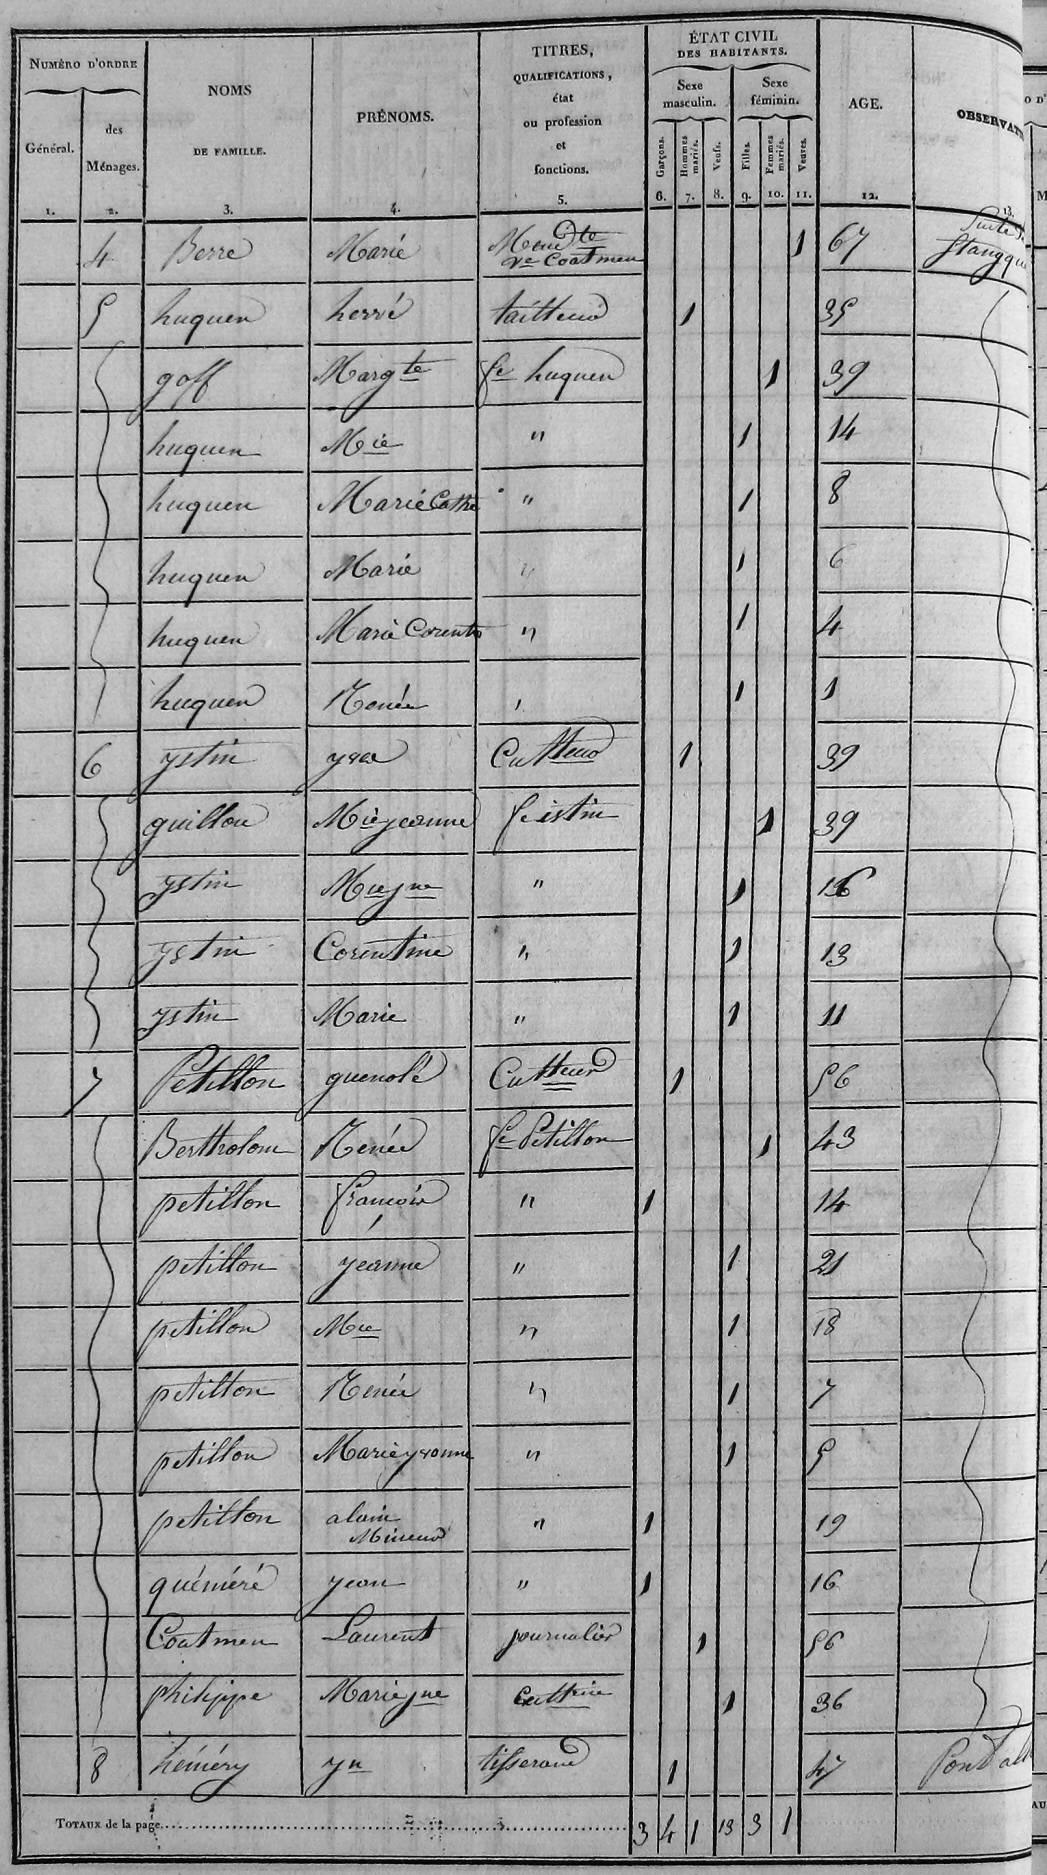 NUMÉRO D'ORDRE | NOMS DE FAMILLE. | PRÉNOMS. | TITRES, QUALIFICATIONS, état ou profession et fonctions. | ÉTAT CIVIL DES HABITANTS. | AGE. | OBSERVAT
Général. | des Ménages. | Sexe masculin. | Sexe féminin.
Garçons. | Hommes mariés. | Veufs. | Filles. | Femmes mariés. | Veuves.
1. | 2. | 3. | 4. | 5. | 6. | 7. | 8. | 9. | 10. | 11. | 12. | 13.
4 | Berre | Marie | Mend te ve Coatmen | 1 | 67 | Suite Stangque
5 | huguen | hervé | tailleur | 1 | 35
goff | Marg te | fe huguen | 1 | 39
huguen | M ie | " | 1 | 14
huguen | Marie Cathe | " | 1 | 8
huguen | Marie | " | 1 | 6
huguen | Marie Corente | " | 1 | 4
huguen | Renée | " | 1 | 1
6 | ystin | yves | Culteur | 1 | 39
guillou | M ie jeanne | fe istin | 1 | 39
ystin | M ie jne | " | 1 | 16
ystin | Corentine | " | 1 | 13
ystin | Marie | " | 1 | 11
7 | Petillon | guenolé | Culteur | 1 | 56
Bertholom | Renée | fe Petillon | 1 | 43
petillon | françois | " | 1 | 14
petillon | jeanne | " | 1 | 21
petillon | M ie | " | 1 | 18
petillon | Renée | " | 1 | 7
petillon | Marie yvonne | " | 1 | 5
petillon | alain Mineur | " | 1 | 19
quéméré | jean | " | 1 | 16
Coatmen | Laurent | journalier | 1 | 56
philippe | Marie jne | 1 | 36
8 | héméry | yn | tisserand | 1 | 47 | Pont
TOTAUX de la page | 3 | 4 | 1 | 13 | 3 | 1